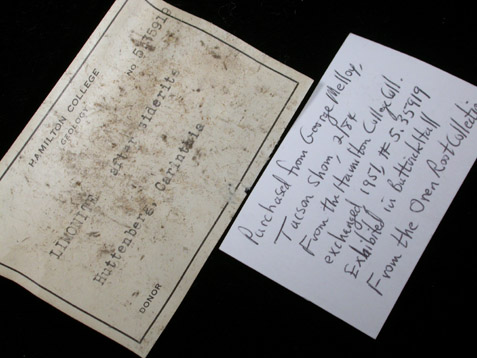 HAMILTON COLLEGE
GEOLOGY
NO S35919
LIMONITE after siderite
Huttenberg, Carinthia
DONOR
Purchased from George Melloy,
Tucson Show, 2/84
From the Hamilton College Coll.
exchanged 1951, # S.35919
Exhibited in Buttrick Hall
From the Oren Root Collection